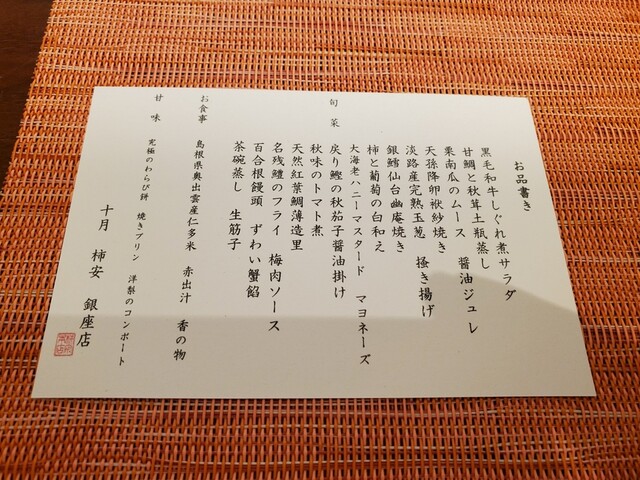 お品書き
黒毛和牛しぐれ煮サラダ
甘鯛と秋茸土瓶蒸し
栗南瓜のムース 醤油ジュレ
天孫降卵袱紗焼き
淡路産完熟玉葱 掻き揚げ
銀鱈仙台幽庵焼き
柿と葡萄の白和え
大海老ハニーマスタード マヨネーズ
旬菜
炙り鰹の秋茄子醤油掛け
秋味のトマト煮
天然紅葉鯛薄造里
名残鱧のフライ 梅肉ソース
百合根饅頭 ずわい蟹餡
茶碗蒸し 生筋子
お食事 島根県奥出雲産仁多米 赤出汁 香の物
甘味 究極のわらび餅 焼きプリン 洋梨のコンポート
十月 柿安 銀座店